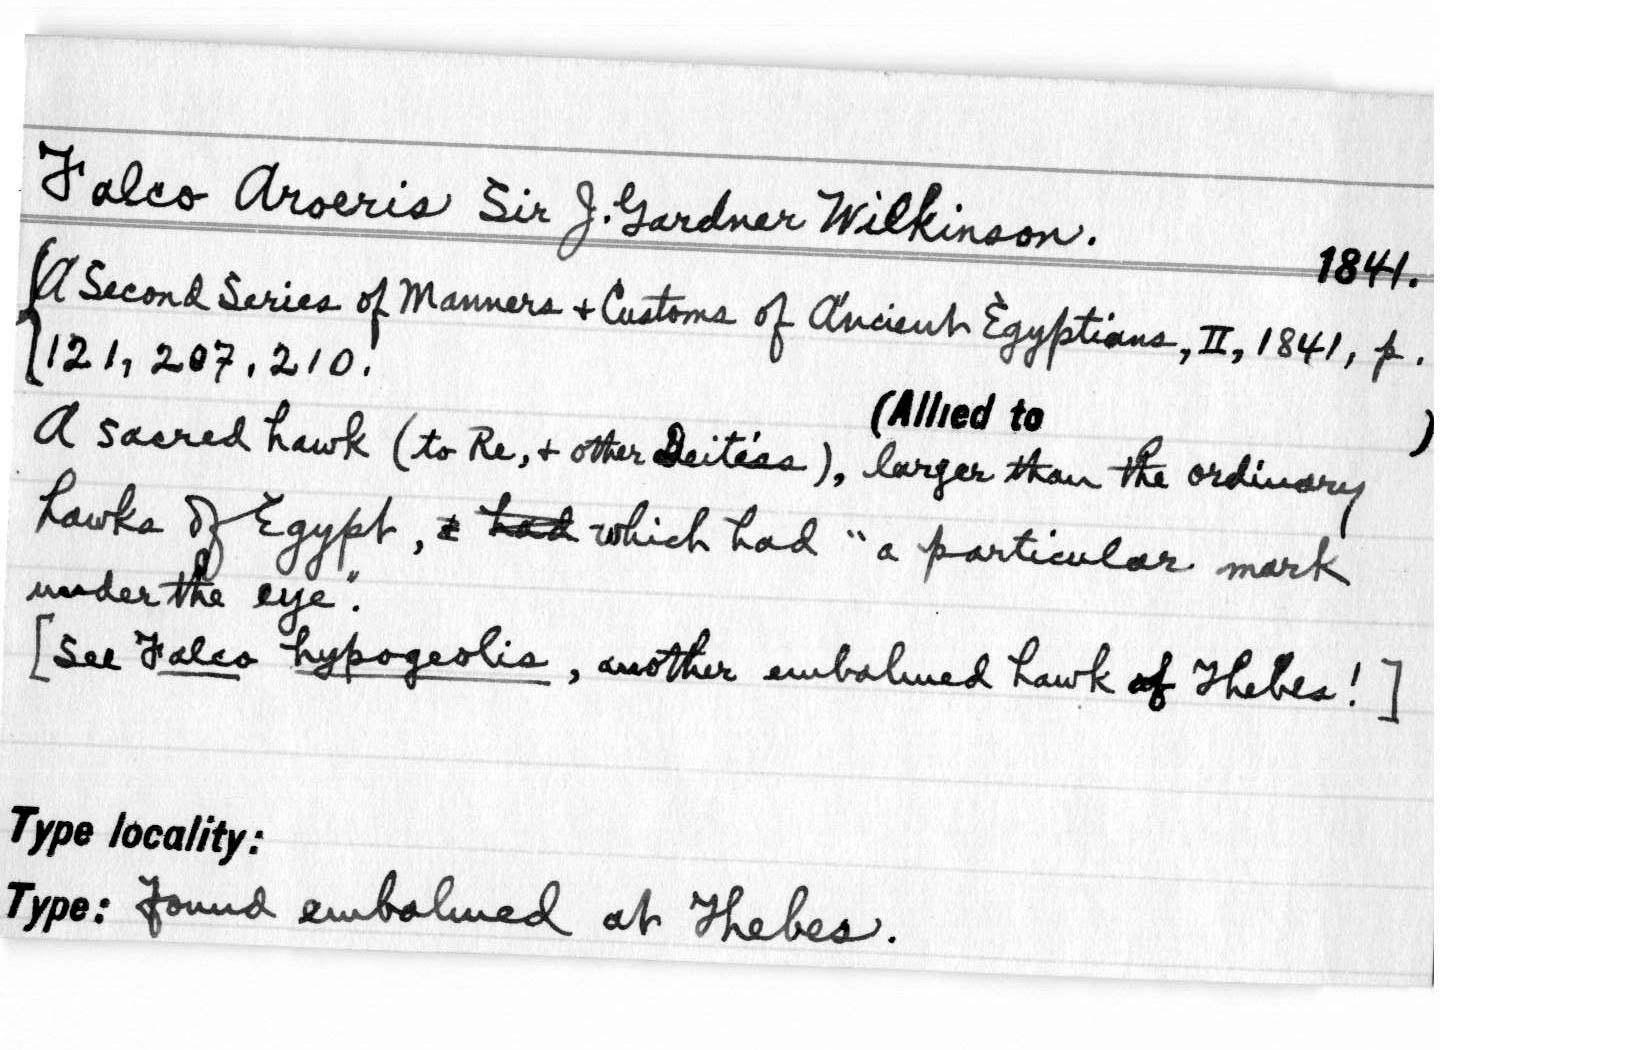 Falco Aroeris Sir J. Gardner Wilkinson.
1841.
A Second Series of Manners + Customs of Ancient Egyptians, II, 1841, p.
121, 207, 210.
(Allied to )
A sacred hawk (to Re, + other Deities), larger than the ordinary
hawks of Egypt, & had which had "a particular mark
under the eye".
[See Falco hypogeolis, another embalmed hawk of Thebes!]
Type locality:
Type: Found embalmed at Thebes.